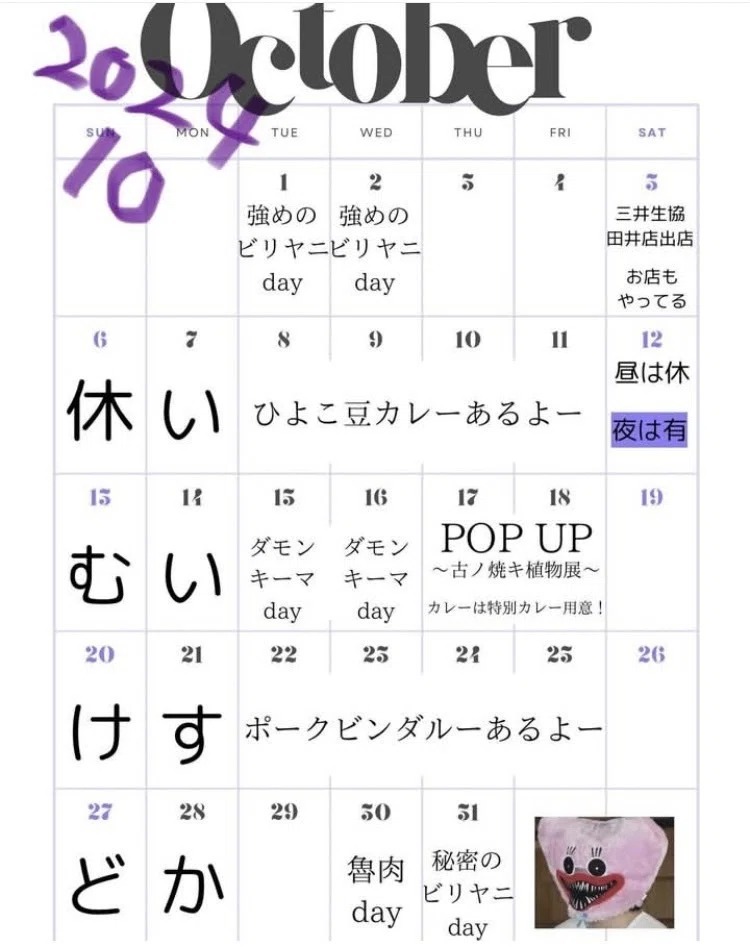 October
2024
10
SUN MON TUE WED THU FRI SAT
1 2 3 4 5
強めの 強めの 三井生協
ビリヤニ ビリヤニ 田井店出店
day day お店も
やってる
6 7 8 9 10 11 12
休 い ひよこ豆カレーあるよー 昼は休
夜は有
13 14 15 16 17 18 19
む い ダモン ダモン POP UP
キーマ キーマ 〜古ノ焼キ植物展〜
day day カレーは特別カレー用意!
20 21 22 23 24 25 26
け す ポークビンダルーあるよー
27 28 29 30 31
ど か 魯肉 秘密の
day ビリヤニ
day